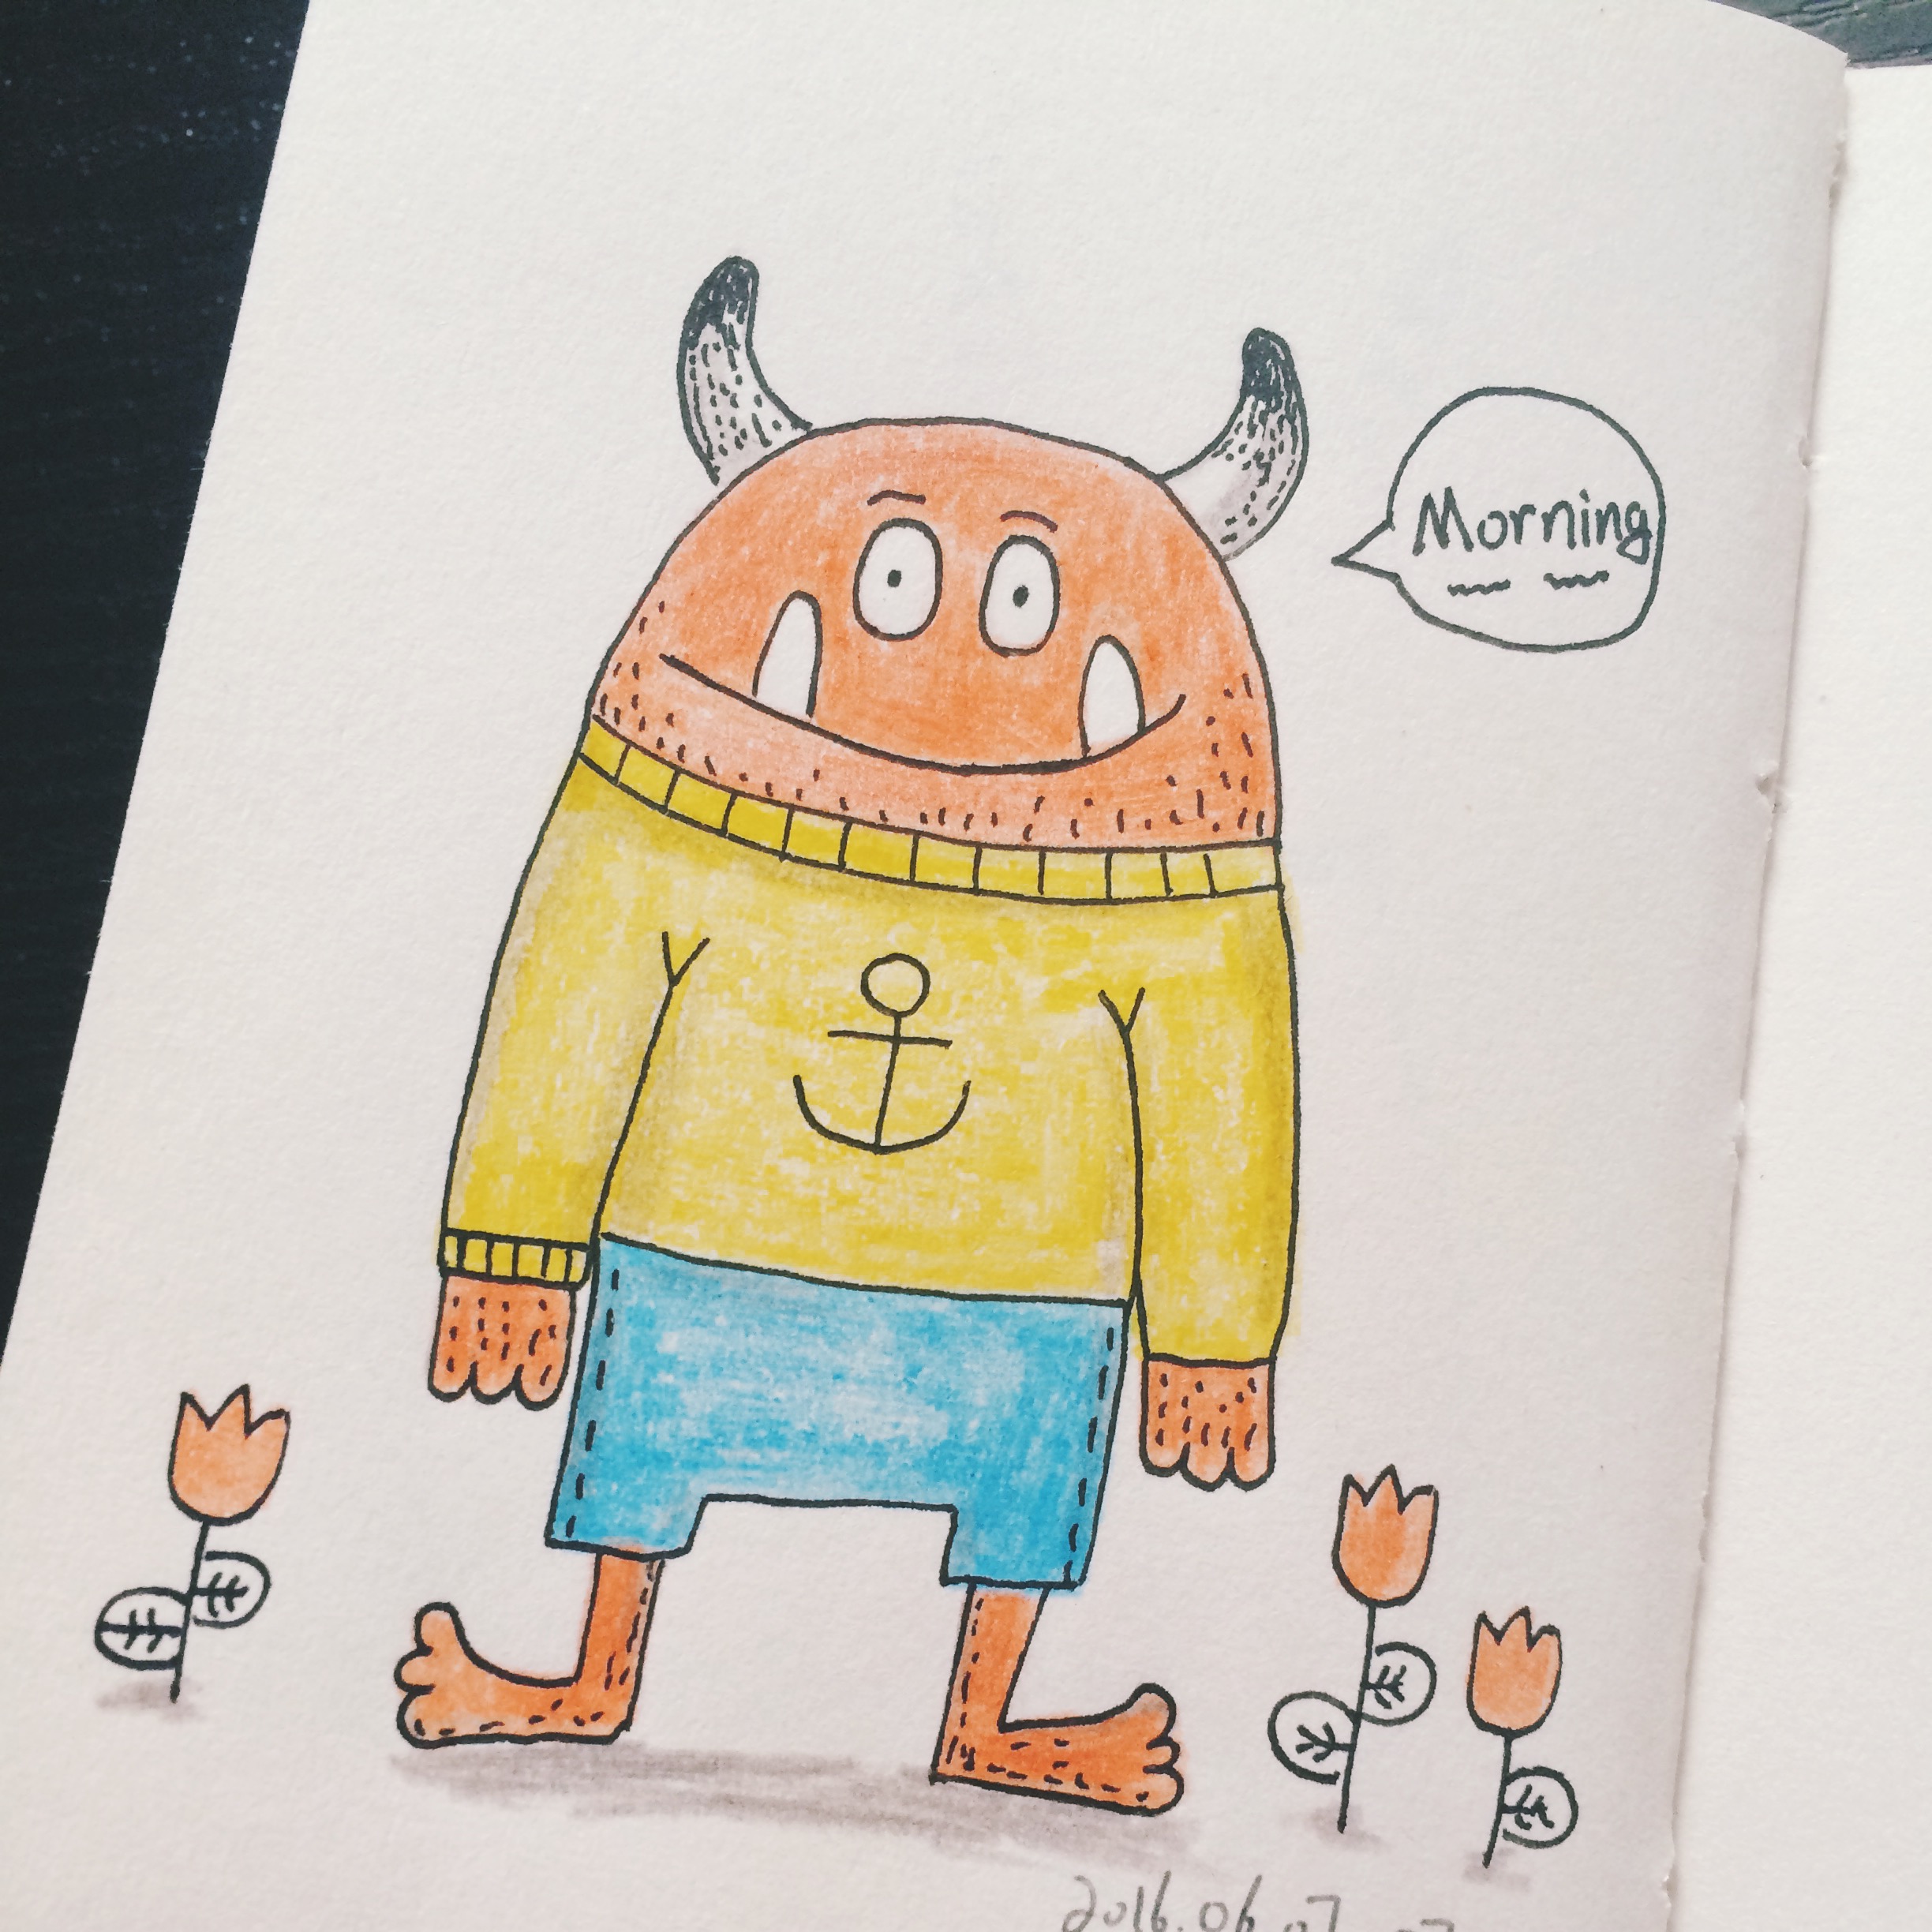 Morning
2016.06.07